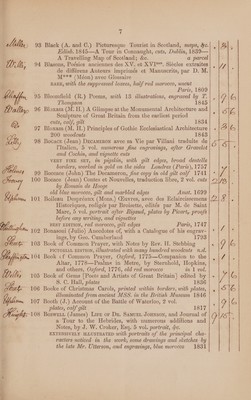 7
93 Black (A. and C.) Picturesque Tourist in Scotland, maps, &c.
Edinb. 1845—A Tour in Connaught, cuts, Dublin, 1839—
A Travelling Map of Scotland; &c. a parcel
94 Blasons, Poésies anciennes des XV. et XVImes. Siècles extraites
de différens Auteurs imprimés et Manuscrits, par D. M.
M*** (Méon) avec Glossaire
RARE, with the suppressed leaves, half red morocco, uncut
Paris, 1809
95 Bloomfield (R.) Poems, with 13 illustrations, engraved by T.
Thompson 1845
96 Bloxam (M. H.) A Glimpse at the Monumental Architecture and
Sculpture of Great Britain from the earliest period
cuts, calf, gilt 1834
97 Bloxam (M. H.) Principles of Gothic Ecclesiastical Architecture
200 woodcuts 1843
98 Bocace (Jean) Decameron avec sa Vie par Villani traduite du
Thuilois, 3 vol. numerous fine engravings, after Gravelot
and Cochin, and vignette cuts
VERY FINE SET, in pigskin, with gilt edges, broad dentelle
borders, worked in gold on the sides Londres (Paris), 1757
99 Boccace (John) The Decameron, fine copy in old gilt calf 1741
100 Bocace (Jean) Contes et Nouvelles, traduction libre, 2 vol. cuts
by Romain de Hooge
old blue morocco, gilt and marbled edges Amst. 1699
101 Boileau Despréaux (Mons.) Œuvres, avec des Eclaircissemens
Historiques, redigés par Brossette, edités par M. de Saint
Marc, 5 vol. portrait after Rigaud, plates by Picart, proofs
before any writing, and vignettes
BEST EDITION, red morocco, gilt edges Paris, 1747
102 Bonasoni (Julio) Anecdotes of, with a Catalogue of his engrav-
ings, by Geo. Cumberland 1793
103 Book of Common Prayer, with Notes by Rev. H. Stebbing
PICTORIAL EDITION, illustrated with many hundred woodcuts n.d.
104 Book of Common Prayer, Oxford, 1775—Companion to the
Altar, 1778—Psalms in Metre, by Sternhold, Hopkins,
and others, Oxford, 1776, old red morocco in 1 vol.
105 Book of Gems (Poets and Artists of Great Britain) edited by
S. C. Hall, plates 1836
106 Books of Christmas Carols, printed within borders, with plates,
illuminated from ancient MSS. in the British Museum 1846
107 Booth (J.) Account of the Battle of Waterloo, 2 vol.
plates, calf gilt 1817
108 Boswell (James) Life of Dr. Samuel Johnson, and Journal of
a Tour to the Hebrides, with numerous additions and
Notes, by J. W. Croker, Esq. 5 vol. portrait, &c.
EXTENSIVELY ILLUSTRATED with portraits of the principal cha-
racters noticed in the work, some drawings and sketches by
the late Mr. Utterson, and engravings, blue morocco 1831